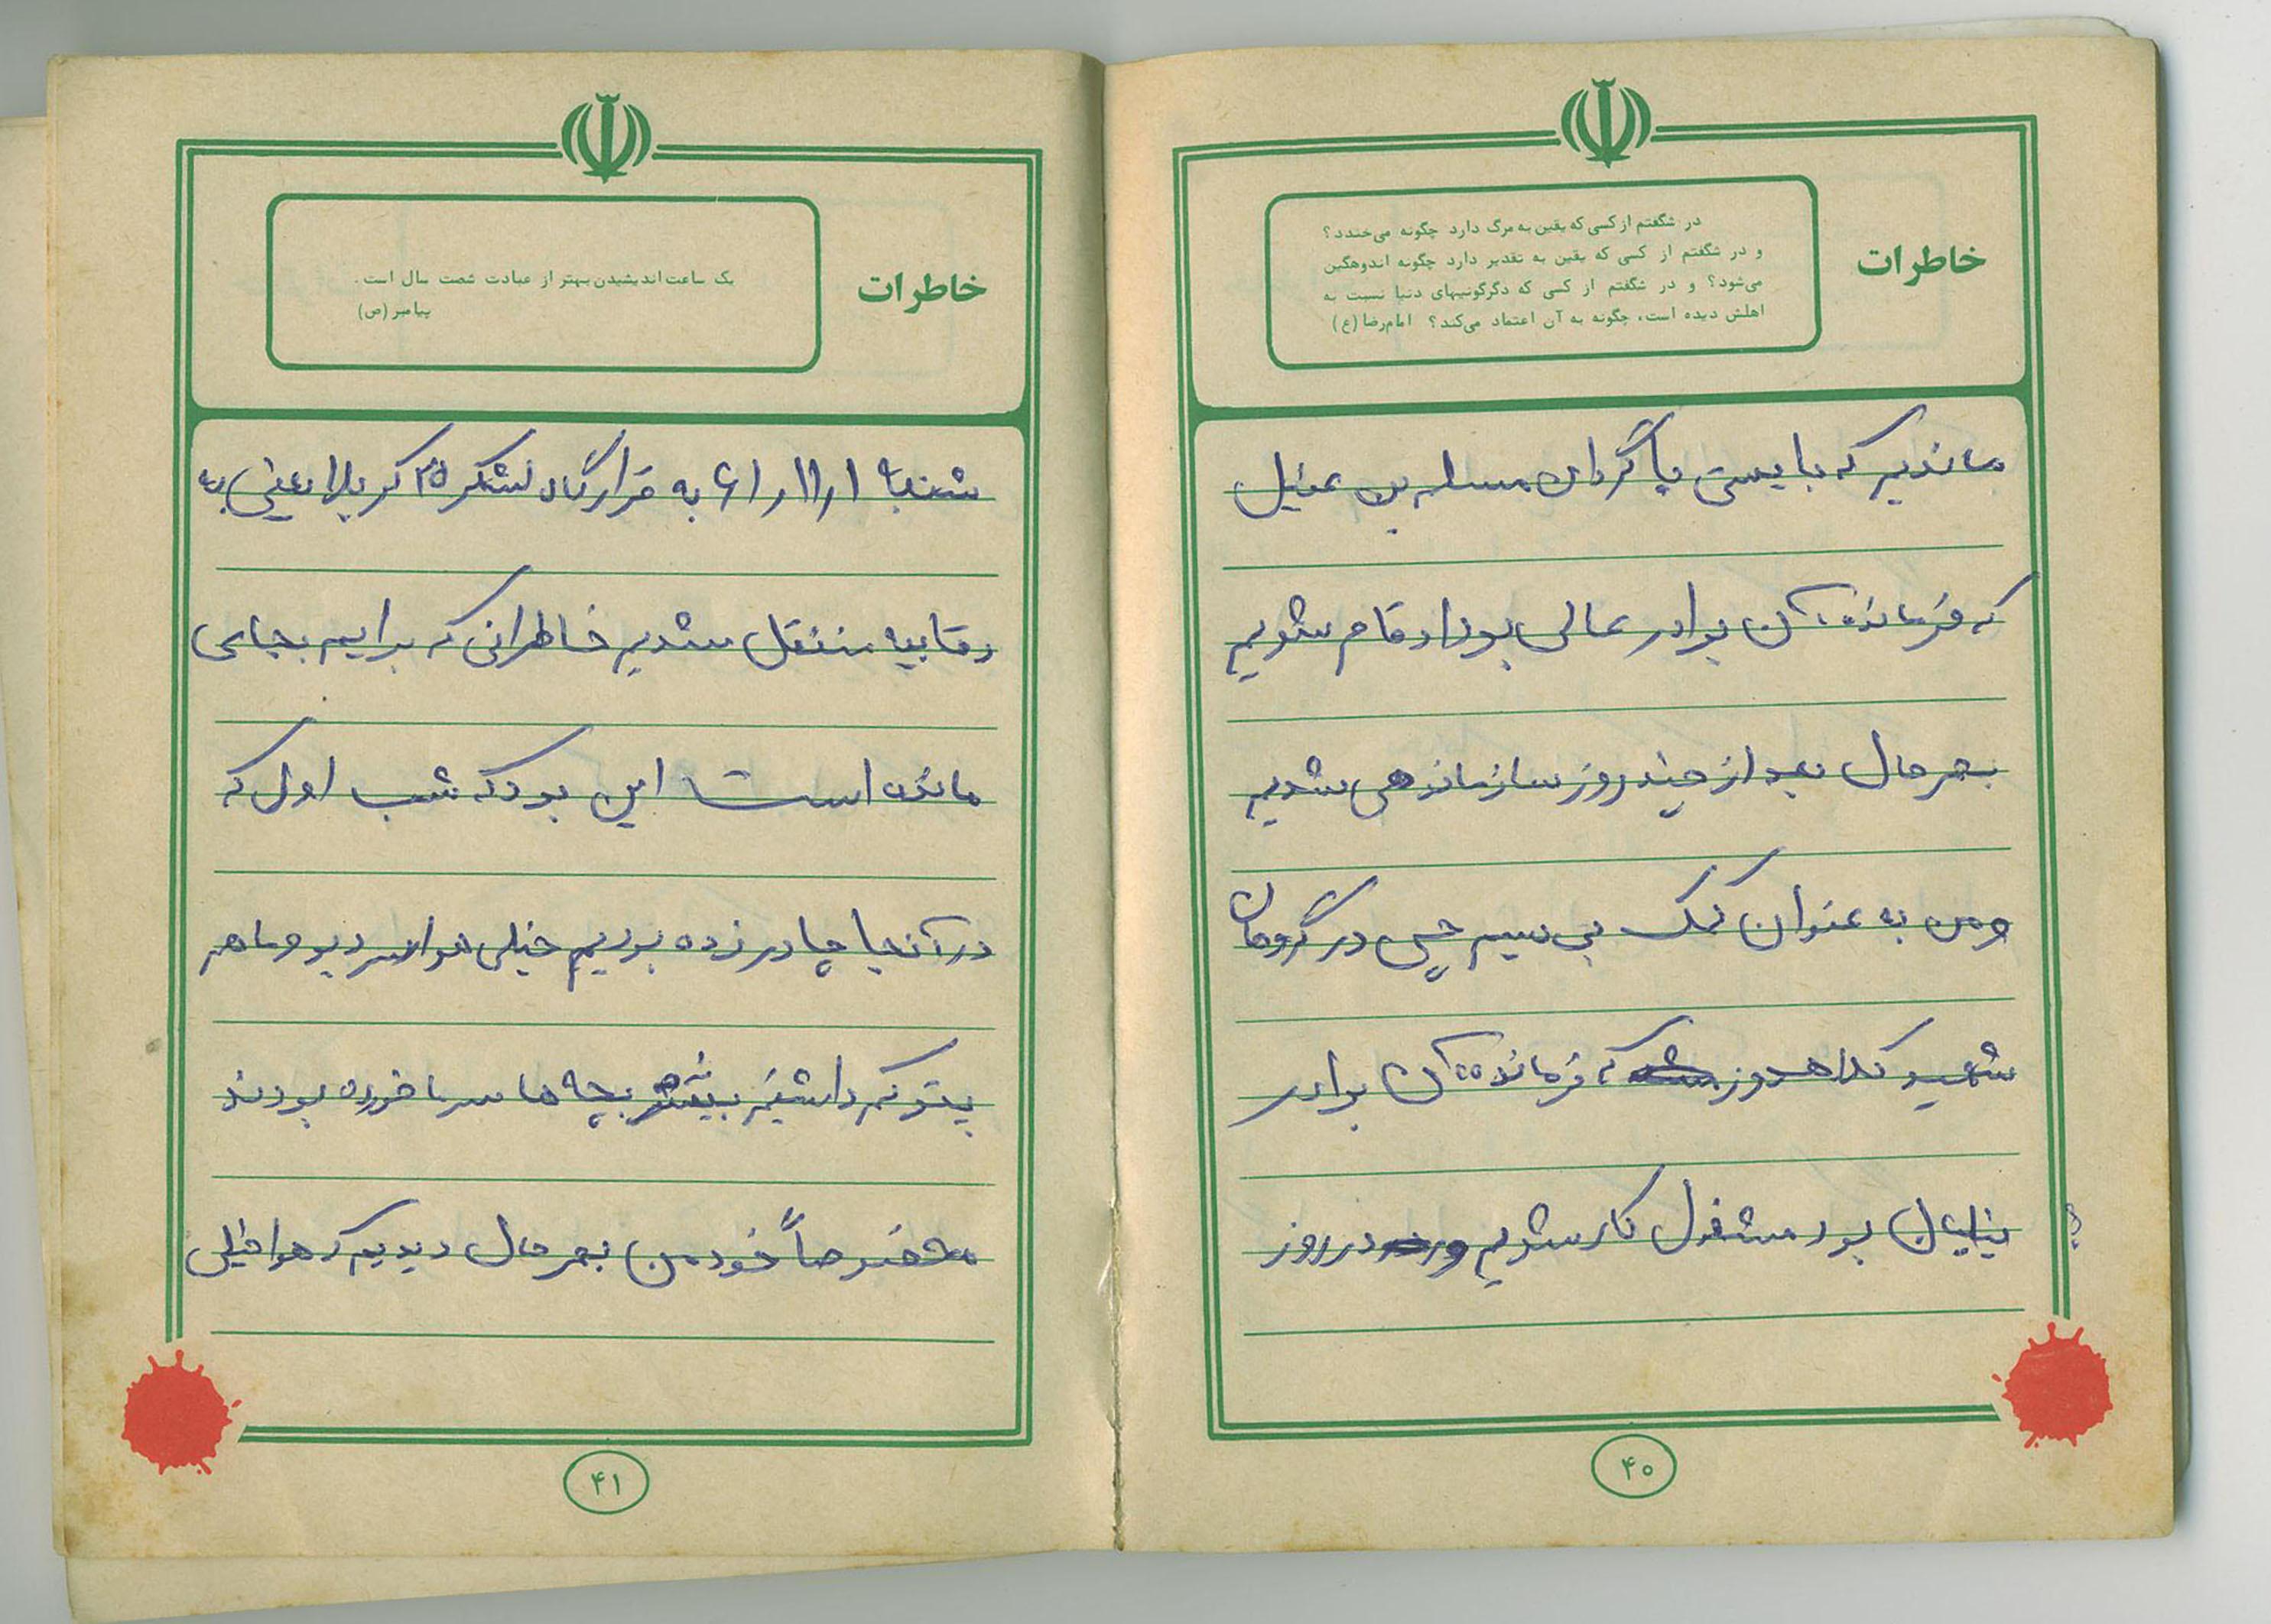 خاطرات
در شگفتم از کسی که یقین به مرگ دارد چگونه می‌خندد؟
و در شگفتم از کسی که یقین به تقدیر دارد چگونه اندوهگین
می‌شود؟ و در شگفتم از کسی که دگرگونیهای دنیا نسبت به
اهلش دیده است، چگونه به آن اعتماد می‌کند؟ امام‌رضا (ع)
ماندیم که بایستی با گردان مسلم بن عقیل
که فرمانده آن برادر عالی بود ادغام شویم
بهرحال بعد از چند روز سازماندهی شدیم
و من به عنوان کمک بی سیم چی در گروهان
شهید کلاهدوز که فرمانده آن برادر
بود مشغول کار شدیم در روز
۴۰
خاطرات
یک ساعت اندیشیدن بهتر از عبادت شصت سال است.
پیامبر (ص)
شنبه ۶۱/۱۱/۱ به قرارگاه لشکر ۲۵ کربلا یعنی به
رقابیه منتقل شدیم خاطراتی که برایم بجای
مانده است این بود که شب اول که
در آنجا چادر زده بودیم خیلی هوا سرد بود ما هم
پتو کم داشتیم بیشتر بچه ها سرما خورده بودند
مخصوصاً خود من بهرحال دیدیم که هوا خیلی
۴۱